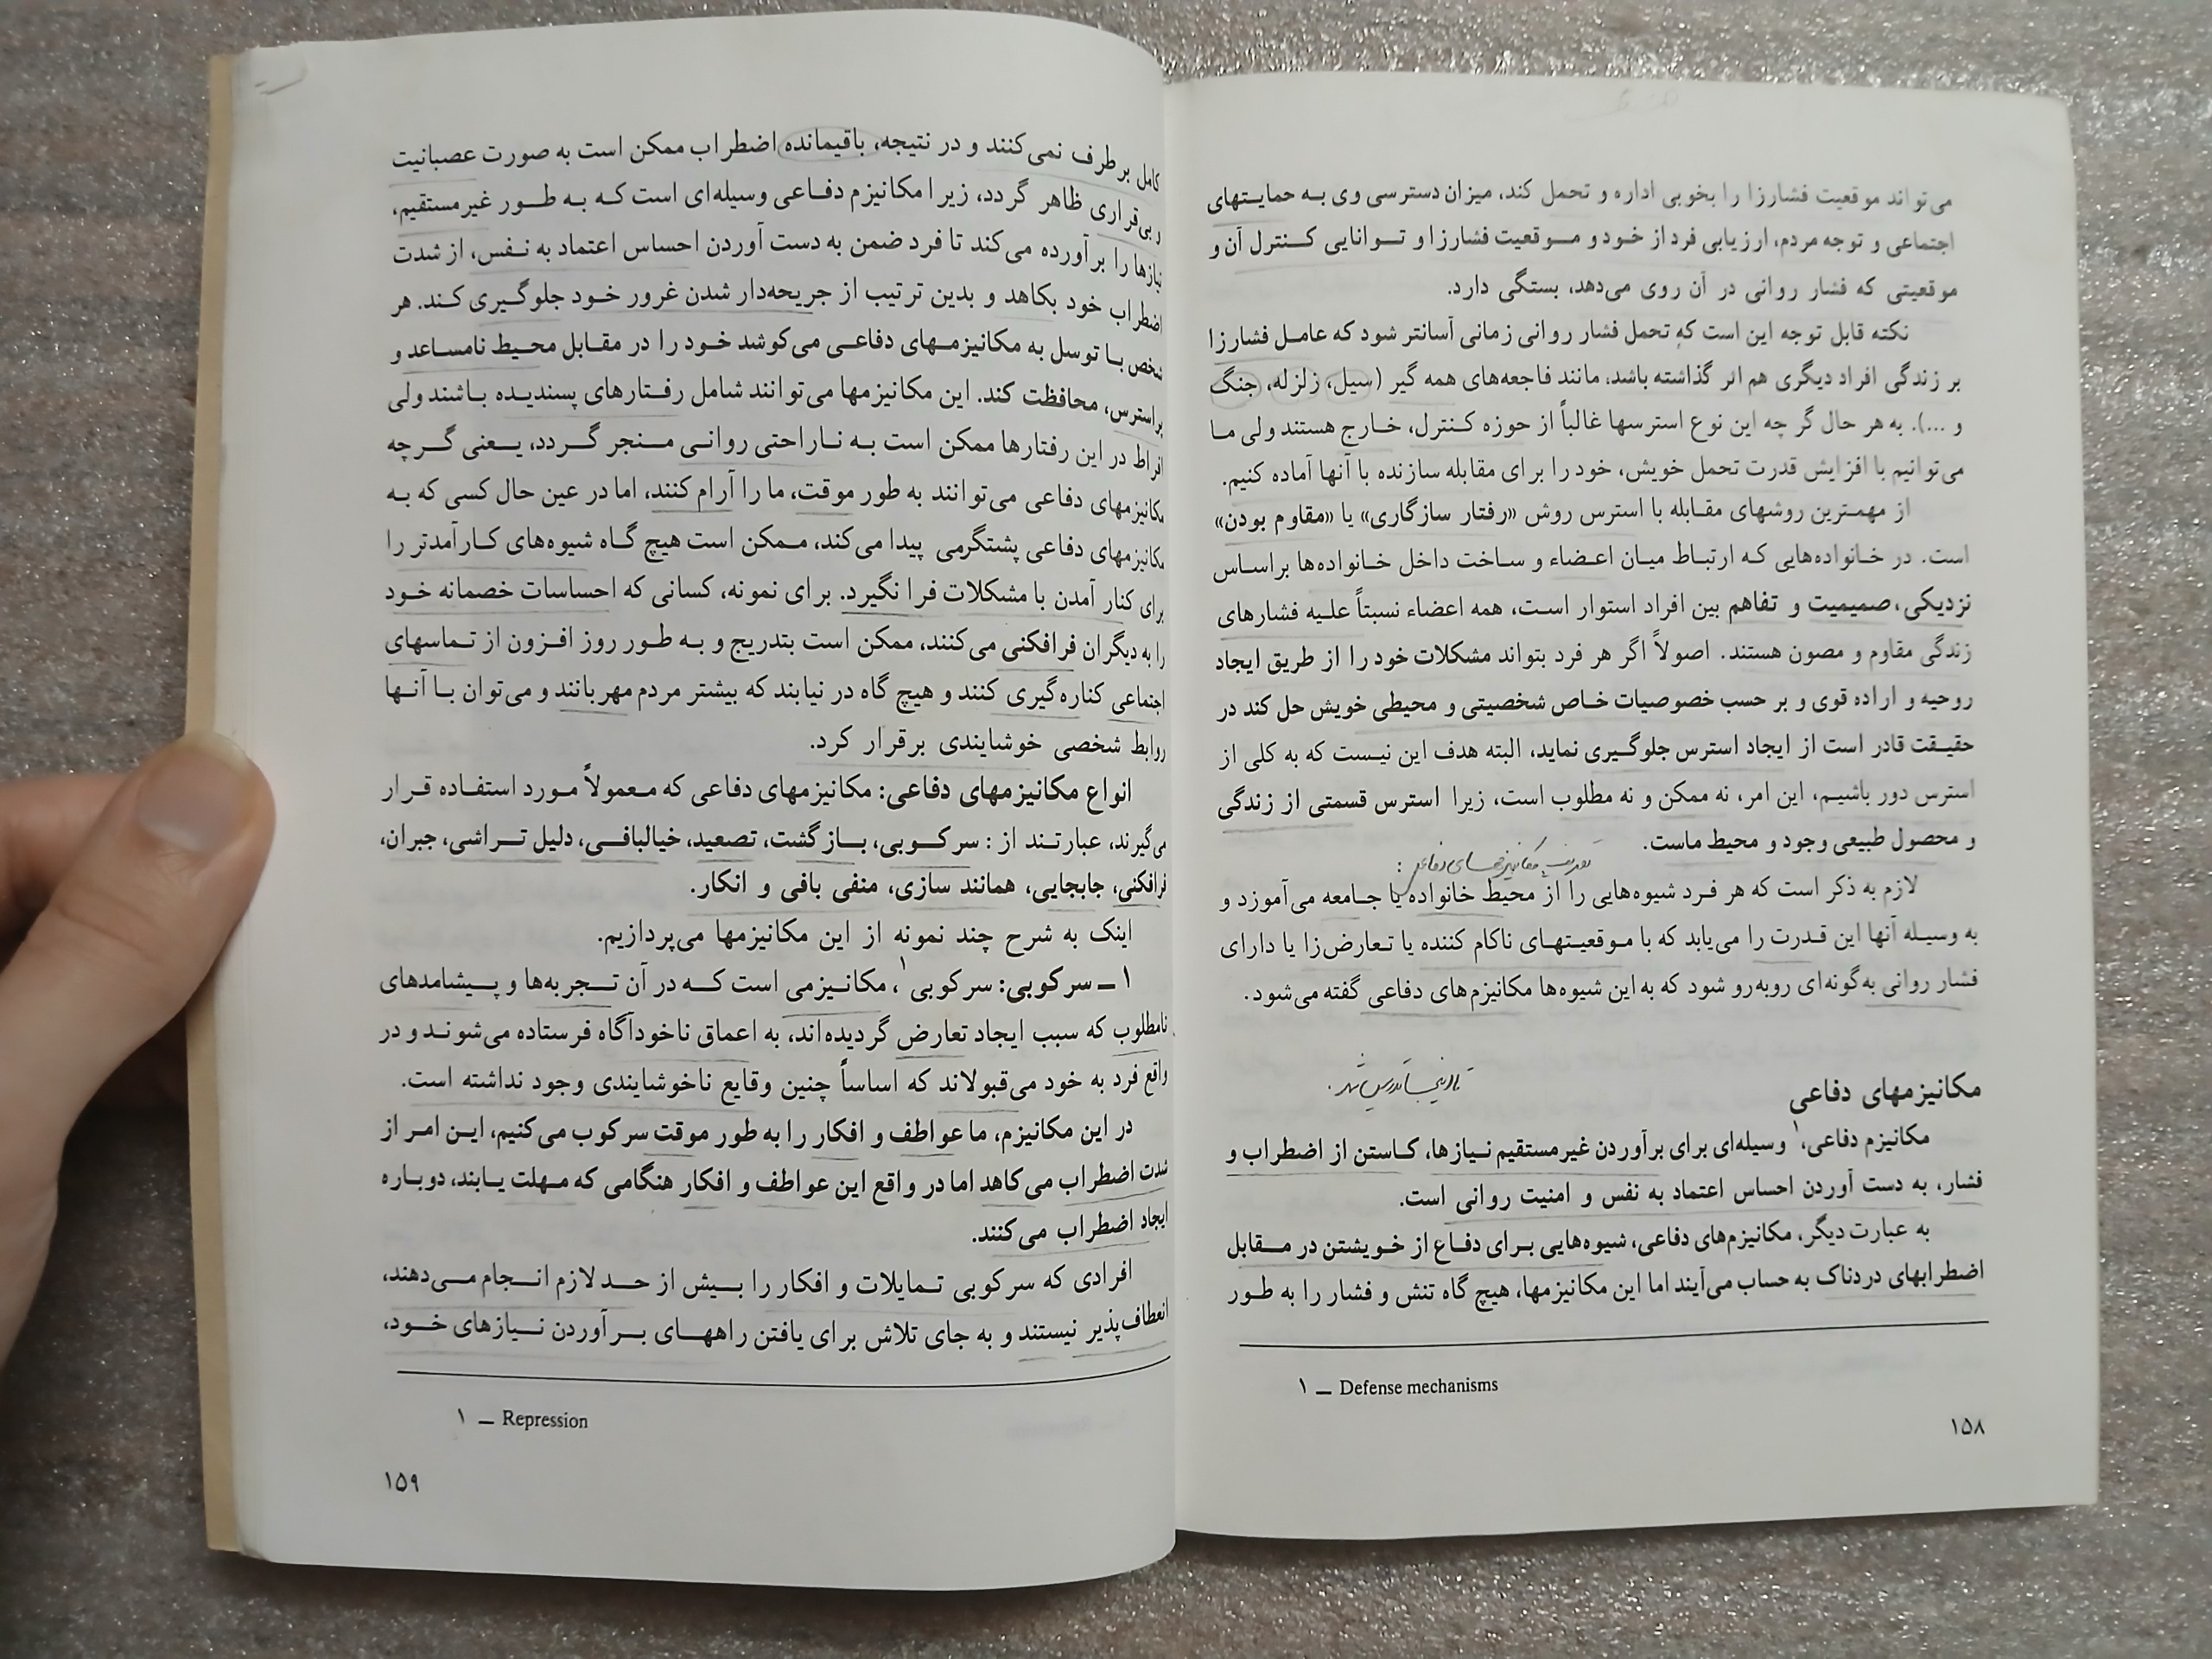 می‌تواند موقعیت فشارزا را بخوبی اداره و تحمل کند، میزان دسترسی وی به حمایتهای
اجتماعی و توجه مردم، ارزیابی فرد از خود و موقعیت فشارزا و توانایی کنترل آن و
موقعیتی که فشار روانی در آن روی می‌دهد، بستگی دارد.
نکته قابل توجه این است که تحمل فشار روانی زمانی آسانتر شود که عامل فشارزا
بر زندگی افراد دیگری هم اثر گذاشته باشد، مانند فاجعه‌های همه گیر (سیل، زلزله، جنگ
و ...). به هر حال گر چه این نوع استرسها غالباً از حوزه کنترل، خارج هستند ولی ما
می‌توانیم با افزایش قدرت تحمل خویش، خود را برای مقابله سازنده با آنها آماده کنیم.
از مهمترین روشهای مقابله با استرس روش «رفتار سازگاری» یا «مقاوم بودن»
است. در خانواده‌هایی که ارتباط میان اعضاء و ساخت داخل خانواده‌ها براساس
نزدیکی، صمیمیت و تفاهم بین افراد استوار است، همه اعضاء نسبتاً علیه فشارهای
زندگی مقاوم و مصون هستند. اصولاً اگر هر فرد بتواند مشکلات خود را از طریق ایجاد
روحیه و اراده قوی و بر حسب خصوصیات خاص شخصیتی و محیطی خویش حل کند در
حقیقت قادر است از ایجاد استرس جلوگیری نماید، البته هدف این نیست که به کلی از
استرس دور باشیم، این امر، نه ممکن و نه مطلوب است، زیرا استرس قسمتی از زندگی
و محصول طبیعی وجود و محیط ماست.
تعریف مکانیزمهای دفاعی :
لازم به ذکر است که هر فرد شیوه‌هایی را از محیط خانواده یا جامعه می‌آموزد و
به وسیله آنها این قدرت را می‌یابد که با موقعیتهای ناکام کننده یا تعارض‌زا یا دارای
فشار روانی به‌گونه‌ای روبه‌رو شود که به این شیوه‌ها مکانیزم‌های دفاعی گفته می‌شود.
مکانیزمهای دفاعی
مکانیزم دفاعی،۱ وسیله‌ای برای برآوردن غیرمستقیم نیازها، کاستن از اضطراب و
فشار، به دست آوردن احساس اعتماد به نفس و امنیت روانی است.
به عبارت دیگر، مکانیزم‌های دفاعی، شیوه‌هایی برای دفاع از خویشتن در مقابل
اضطرابهای دردناک به حساب می‌آیند اما این مکانیزمها، هیچ گاه تنش و فشار را به طور
۱ – Defense mechanisms
۱۵۸
کامل بر طرف نمی‌کنند و در نتیجه، باقیمانده اضطراب ممکن است به صورت عصبانیت
و بی‌قراری ظاهر گردد، زیرا مکانیزم دفاعی وسیله‌ای است که به طور غیرمستقیم،
نیازها را برآورده می‌کند تا فرد ضمن به دست آوردن احساس اعتماد به نفس، از شدت
اضطراب خود بکاهد و بدین ترتیب از جریحه‌دار شدن غرور خود جلوگیری کند. هر
شخص با توسل به مکانیزمهای دفاعی می‌کوشد خود را در مقابل محیط نامساعد و
پراسترس، محافظت کند. این مکانیزمها می‌توانند شامل رفتارهای پسندیده باشند ولی
افراط در این رفتارها ممکن است به ناراحتی روانی منجر گردد، یعنی گرچه
مکانیزمهای دفاعی می‌توانند به طور موقت، ما را آرام کنند، اما در عین حال کسی که به
مکانیزمهای دفاعی پشتگرمی پیدا می‌کند، ممکن است هیچ گاه شیوه‌های کارآمدتر را
برای کنار آمدن با مشکلات فرا نگیرد. برای نمونه، کسانی که احساسات خصمانه خود
را به دیگران فرافکنی می‌کنند، ممکن است بتدریج و به طور روز افزون از تماسهای
اجتماعی کناره‌گیری کنند و هیچ گاه در نیابند که بیشتر مردم مهربانند و می‌توان با آنها
روابط شخصی خوشایندی برقرار کرد.
انواع مکانیزمهای دفاعی: مکانیزمهای دفاعی که معمولاً مورد استفاده قرار
می‌گیرند، عبارتند از : سرکوبی، بازگشت، تصعید، خیالبافی، دلیل تراشی، جبران،
فرافکنی، جابجایی، همانند سازی، منفی بافی و انکار.
اینک به شرح چند نمونه از این مکانیزمها می‌پردازیم.
۱ – سرکوبی: سرکوبی۱، مکانیزمی است که در آن تجربه‌ها و پیشامدهای
نامطلوب که سبب ایجاد تعارض گردیده‌اند، به اعماق ناخودآگاه فرستاده می‌شوند و در
واقع فرد به خود می‌قبولاند که اساساً چنین وقایع ناخوشایندی وجود نداشته است.
در این مکانیزم، ما عواطف و افکار را به طور موقت سرکوب می‌کنیم، این امر از
شدت اضطراب می‌کاهد اما در واقع این عواطف و افکار هنگامی که مهلت یابند، دوباره
ایجاد اضطراب می‌کنند.
افرادی که سرکوبی تمایلات و افکار را بیش از حد لازم انجام می‌دهند،
انعطاف‌پذیر نیستند و به جای تلاش برای یافتن راههای برآوردن نیازهای خود،
۱ – Repression
۱۵۹